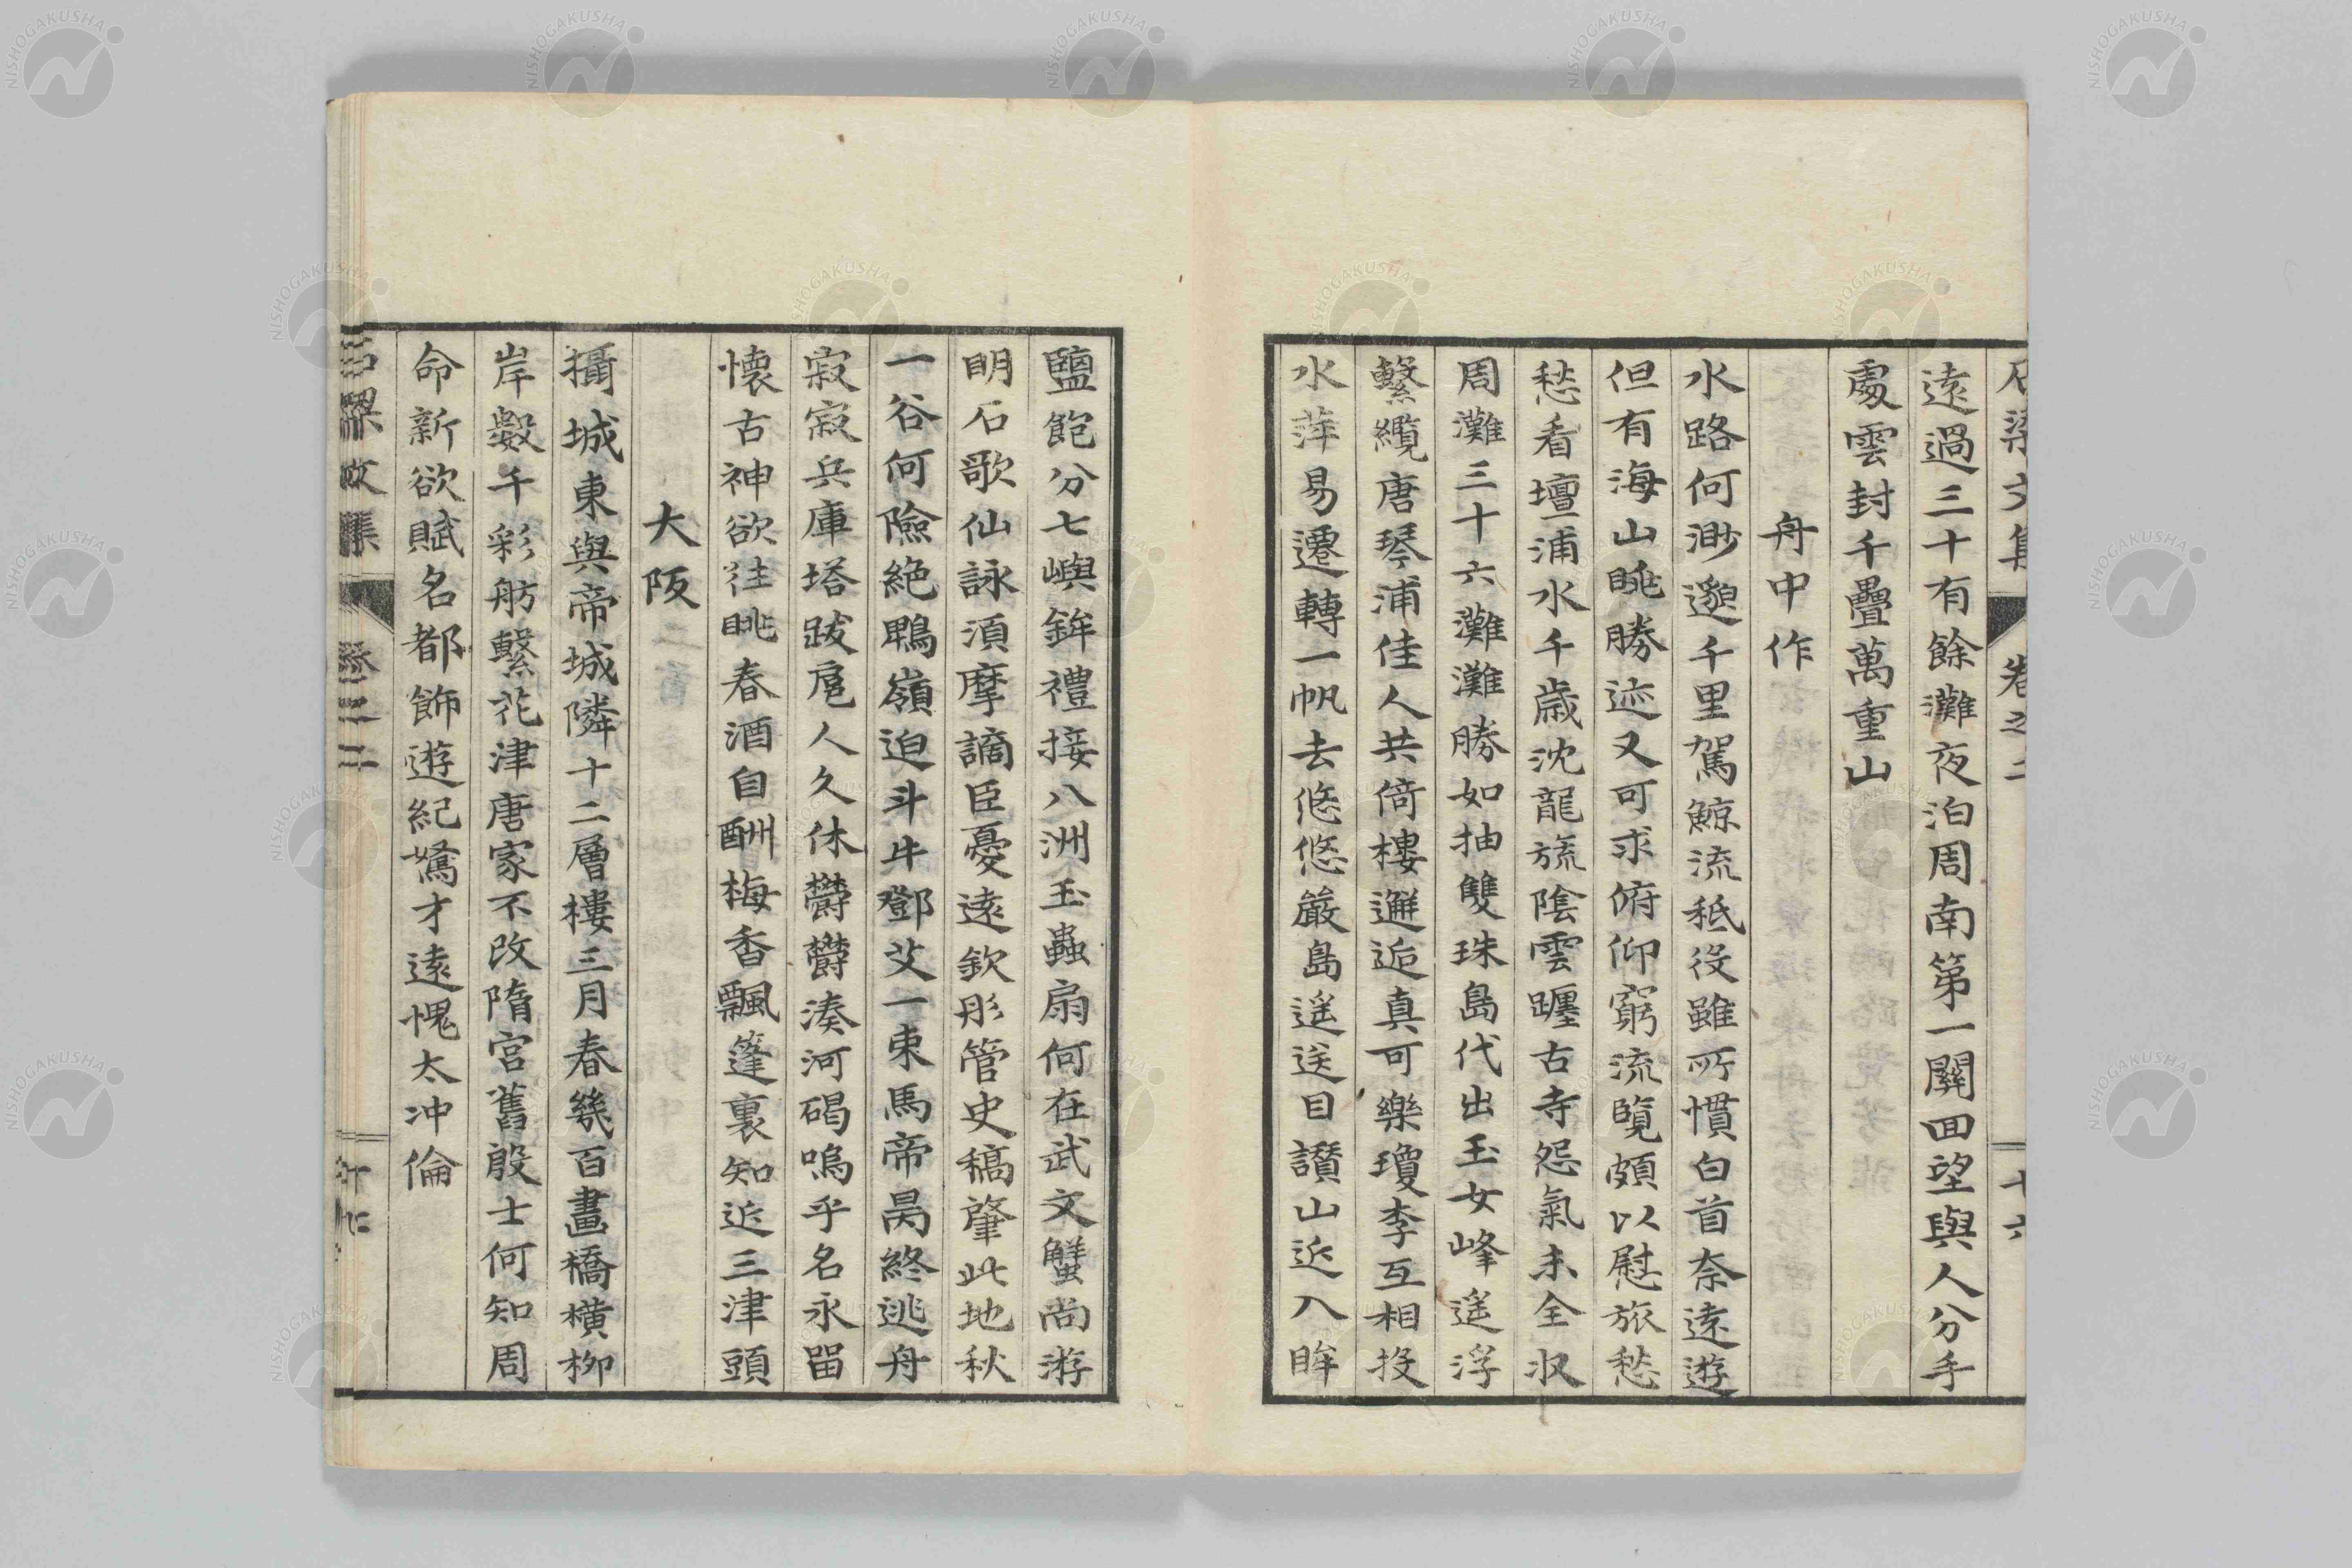 遠過三十有餘灘夜泊周南第一關回望與人分手
處雲封千疊萬重山
舟中作
水路何渺邈千里駕鯨流祗役雖所慣白首奈遠遊
但有海山眺勝迹又可求俯仰窮流覽頗以慰旅愁
愁看壇浦水千歲沈龍旒陰雲躔古寺怨氣未全收
周灘三十六灘灘勝如抽雙珠島代出玉女峰遙浮
繫纜唐琴浦佳人共倚樓邂逅真可樂瓊李互相投
水萍易遷轉一帆去悠悠嚴島遙送目讃山近入眸
鹽飽分七嶼鉾禮接八洲玉蟲扇何在武文蟹尚游
明石歌仙詠須摩謫臣憂遠欽彤管史稿肇此地秋
一谷何險絶鵯嶺迫斗牛鄧艾一東馬帝昺終逃舟
寂寂兵庫塔跋扈人久休欝欝湊河碣嗚乎名永留
懷古神欲往眺春酒自酬梅香飄篷裏知近三津頭
大阪
攝城東與帝城隣十二層樓三月春幾百畫橋橫柳
岸數千彩舫繫花津唐家不改隋宮舊殷士何知周
命新欲賦名都飾遊紀駑才遠愧太冲倫
石梁文集
卷之二
十六
NISHOGAKUSHA